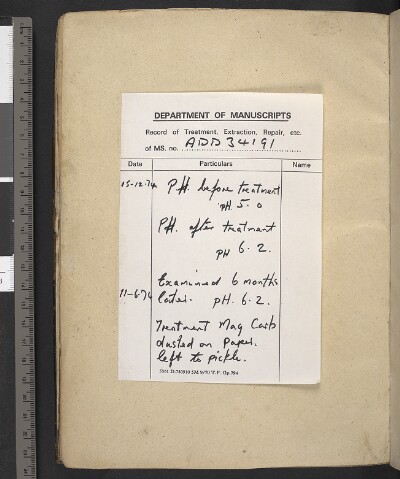 DEPARTMENT OF MANUSCRIPTS
Record of Treatment, Extraction, Repair, etc.
of MS. no. ADD 34191
Date Particulars Name
15-12-74 PH. before treatment
pH. 5.0
PH. after treatment
pH 6.2.
Examined 6 months
11-6-74 later. pH. 6.2.
Treatment Mag Carb
dusted on paper.
left to pickle.